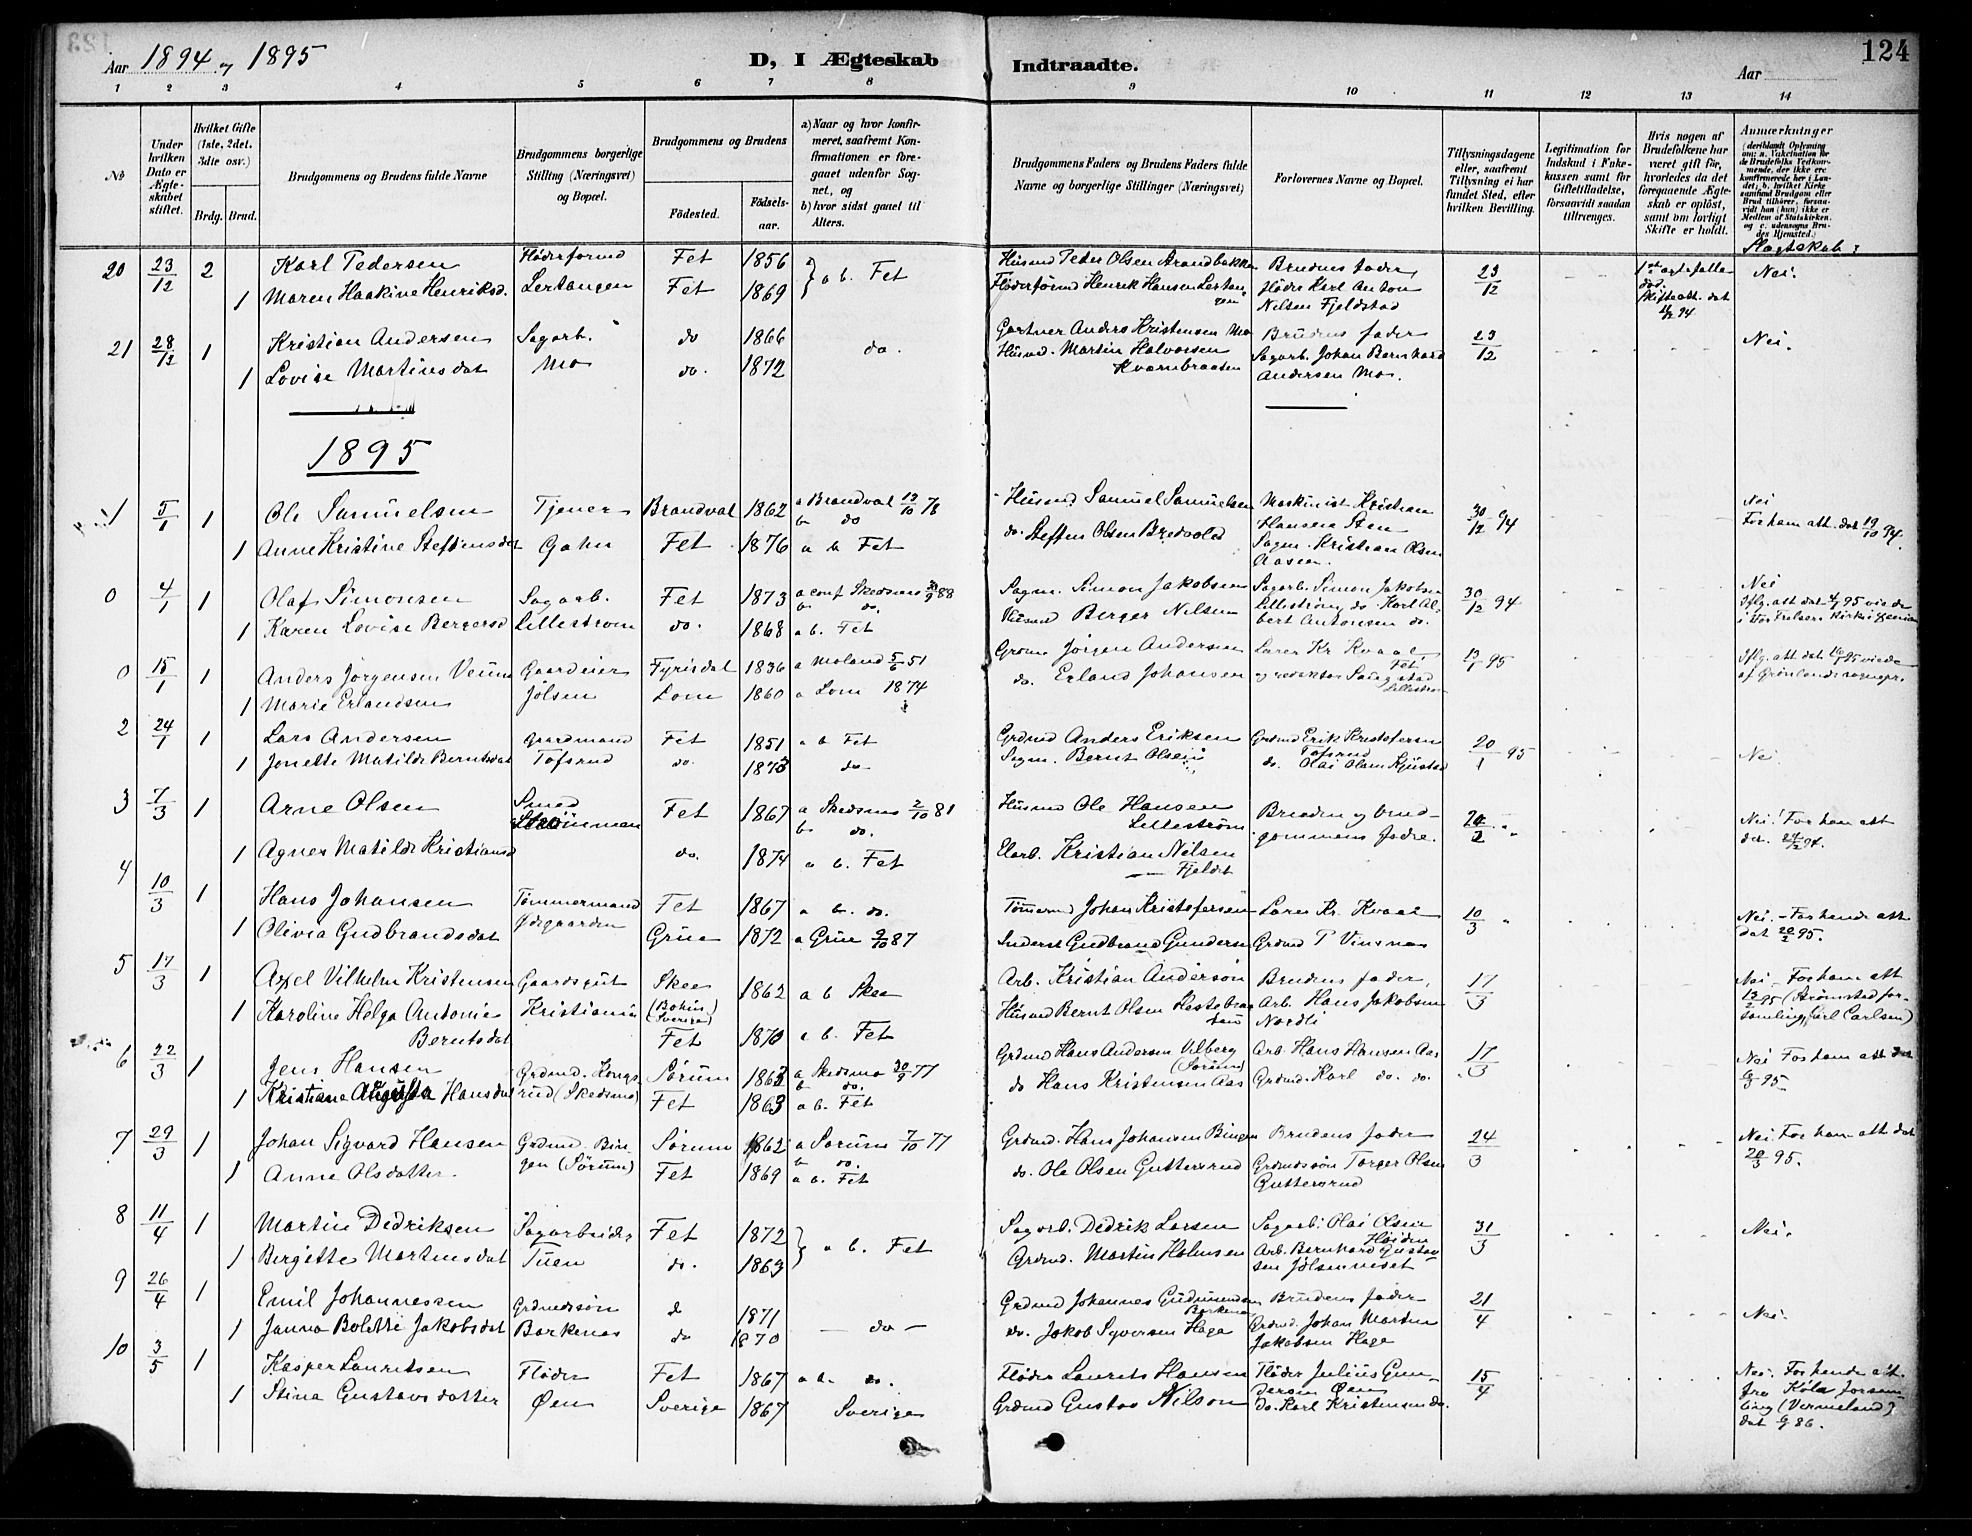 Aar 1894 og 1895
D, I Ægteskab Indtraadte.
Aar
124
1 2 3 4 5 6 7 8 9 10 11 12 13 14
No
Under hvilken Dato er Ægteskabet stiftet.
Hvilket Gifte (1ste, 2det, 3die osv.)
Brdg. Brud.
Brudgommens og Brudens fulde Navne
Brudgommens borgerlige Stilling (Næringsvei) og Bopæl.
Brudgommens og Brudens
Fødested.
Fødselsaar.
a) Naar og hvor konfirmeret, saafremt Konfirmationen er foregaaet udenfor Sognet, og
b) hvor sidst gaaet til Alters.
Brudgommens Faders og Brudens Faders fulde Navne og borgerlige Stillinger (Næringsvei)
Forlovernes Navne og Bopæl.
Tillysningsdagene eller, saafremt Tillysning ei har fundet Sted, efter hvilken Bevilling.
Legitimation for Indskud i Enkekassen samt for Giftetilladelse, forsaavidt saadan tiltrænges.
Hvis nogen af Brudefolkene har været gift før, hvorledes da det foregaaende Ægteskab er opløst, samt om lovligt Skifte er holdt.
Anmærkninger
Slægtskab:
20 23/12 2 Karl Pedersen Fløderformd Fet 1856 a b. Fet Husmd Peder Olsen Strandbakken Brudens fader, 23/12 Nei.
1 Maren Haakine Henriksd. Lertangen Fet 1869 Fløderformd Henrik Hansen Lertangen Fløder Karl Anton
Nelsen Fjeldstad
21 28/12 1 Kristian Andersen Sagarb. do 1866 do. Gartner Anders Kristensen Mo Brudens fader 23/12 Nei.
1 Lovise Martinsdat Mo do. 1872 Husmd. Martin Halvorsen Sagarb. Johan Bernhard
Kvernbraaten Andersen Mo.
1895
1 5/1 1 Ole Samuelsen Tjener Brandval 1862 a Brandval 13/10 78 Husmd Samuel Samuelsen Maskinist Kristian 30/12 94 Nei
b do Hansen Sten For ham att. dat 19/10 94.
1 Anne Kristine Steffensdat Gahn Fet 1876 a b Fet do. Steffen Olsen Bredvold Sagm. Kristian Olsen
Aaseen.
0 4/1 1 Olaf Simonsen Sagarb. Fet 1873 a conf Skedsmo 30/9 88 Sagm. Simon Jakobsen Sagarb. Simon Jakobsen 30/12 94 Nei
b do. Lillestrøm, do Karl Al-
1 Karen Lovise Bergersd Lillestrøm do. 1868 a b. Fet Husmd Berger Nilsen bert Antonsen do.
0 15/1 1 Anders Jørgensen Veum Gaardeier Fyrisdal 1836 a Moland 5/6 51 Grdmd Jørgen Andersen Lærer Kr. Kvaal Fet 13/1 95
1 Marie Erlandsen Jølsen Lom 1860 a Lom 1874 do. Erland Johansen og redaktør Lillestrøm
2 24/1 1 Lars Andersen Gaardmand Fet 1851 a b Fet Grdmd Anders Eriksen Grdmd Erik Kristofersen 20/1 95 Nei
1 Jonette Matilde Berntsdat Tofsrud do. 1873 do Sagm. Bernt Olsen Tofsrud
do. Olai Olsen
3 7/3 1 Arne Olsen Smed Fet 1867 a Skedsmo 2/10 81 Husmd Ole Hansen Bruden og brud-
Strømmen b do. Lillestrøm gommens fædre. 24/2 Nei! For ham att
1 Agnes Matilde Kristiansd do. 1874 a b. Fet Elvarb. Kristian Nilsen dat. 24/2 94.
Fjeldet
4 10/3 1 Hans Johansen Tømmermand Fet 1867 a b. do. Tømmermd Johan Kristofersen Lærer Kr. Kvaal 10/3 Nei. - For hende att
1 Olivia Gudbrandsdat Ødegaarden Grue 1872 a Grue 9/10 87 Inderst Gudbrand Gundersen Grdmd P Vinsnes dat 20/2 95.
5 17/3 1 Axel Vilhelm Kristensen Gaardsgut Skee 1862 a b Skee Arb. Kristian Anderson Brudens fader, 17/3 Nei - For ham att
1 Karoline Helga Antonie Kristiania (Bohus.) Husmd Bernt Olsen Hestebraaten Arb. Hans Jakobsen 12/2 95 (Strømstad for-
(Sverige) Nordli samling, Carl Carlsen)
Berntsdat Fet 1870 a b. Fet
6 22/3 1 Jens Hansen Grdmd. Kongs- Sørum 1863 a Skedsmo 30/9 77 Grdmd Hans Andersen Vilberg Arb. Hans Hansen Aas 17/3 Nei For ham att dat
b do. (Sørum)
1 Kristiane Augusta Hansdat rud (Skedsmo) Fet 1863 a b. Fet do Hans Kristensen Aas Grdmd. Karl do. do. 6/3 95.
7 29/3 1 Johan Sigvard Hansen Grdmd. Bin- Sørum 1862 a Sørum 7/10 77 Grdmd. Hans Johansen Bingen Brudens fader 24/3 Nei. For ham att dat
gen (Sørum) b do.
1 Anne Olsdatter. Fet 1869 a b. Fet do. Ole Olsen Guttersrud Grdmdssøn Torger Olsen 20/3 95.
Guttersrud
8 11/4 1 Martin Dedriksen Sagarbeider Fet 1872 a b. Fet Sagarb. Dedrik Larsen Sagarb. Olai Olsen 31/3 Nei.
Høiden
1 Bergette Martinsdat Tuen do. 1863 Grdmd. Martin Holmsen Arb. Bernhard Gustav-
sen Jølseneset
9 26/4 1 Emil Johannessen Grdmdssøn do 1871 Grdmd Johannes Gudmundsen Brudens fader 21/4
Barkenes
1 Janna Bolette Jakobsdat Barkenes do 1870 — do — do. Jakob Syversen Hage Grdmd. Johan Martin Nei.
Jakobsen Hage
10 3/5 1 Kasper Lauritsen Fløder Fet 1867 a b. do. Fløder Laurits Hansen Fløder Julius Gun- 15/4 Nei. For hende att.
dersen Øen fra Köla forsam-
1 Stina Gustavsdatter Øen Sverige 1867 Sverige Grdmd Gustav Nilson do. Karl Kristensen do. ling (Vermeland)
dat 86.